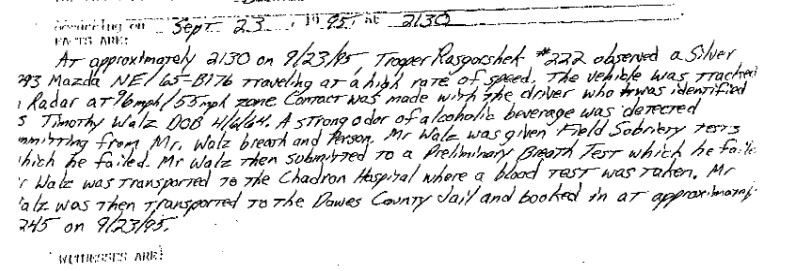 occurring on Sept. 23, 1995, at 2130
FACTS ARE:
At approximately 2130 on 9/23/95, Trooper Rasgorshek #222 observed a Silver
Mazda NE/65-B176 traveling at a high rate of speed. The vehicle was tracked
Radar at 96 mph/55 mph zone. Contact was made with the driver who was identified
s Timothy Walz DOB 4/6/64. A strong odor of alcoholic beverage was detected
mmitting from Mr. Walz breath and Person. Mr Walz was given Field Sobriety tests
hich he failed. Mr Walz then submitted to a Preliminary Breath Test which he faile
r Walz was transported to the Chadron Hospital where a blood test was taken. Mr
alz was then transported to the Dawes County Jail and booked in at approximately
245 on 9/23/95.
WITNESSES ARE: